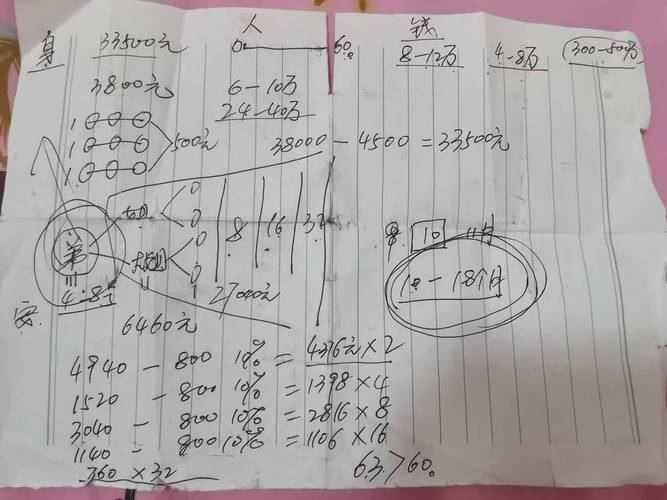 身 33500元 人 钱
0 60 8-12万 4-8万 300-500万
3800元 6-10万
24-40万
1000
1000 500元 38000-4500=33500元
1000
8 16 32
弟 10
10-18个月
4-8万
27000元
6460元
4940-800 10%=4376元×2
1520-800 10%=1398×4
3040-800 10%=2816×8
1140-800 10%=1106×16
760×32 63760